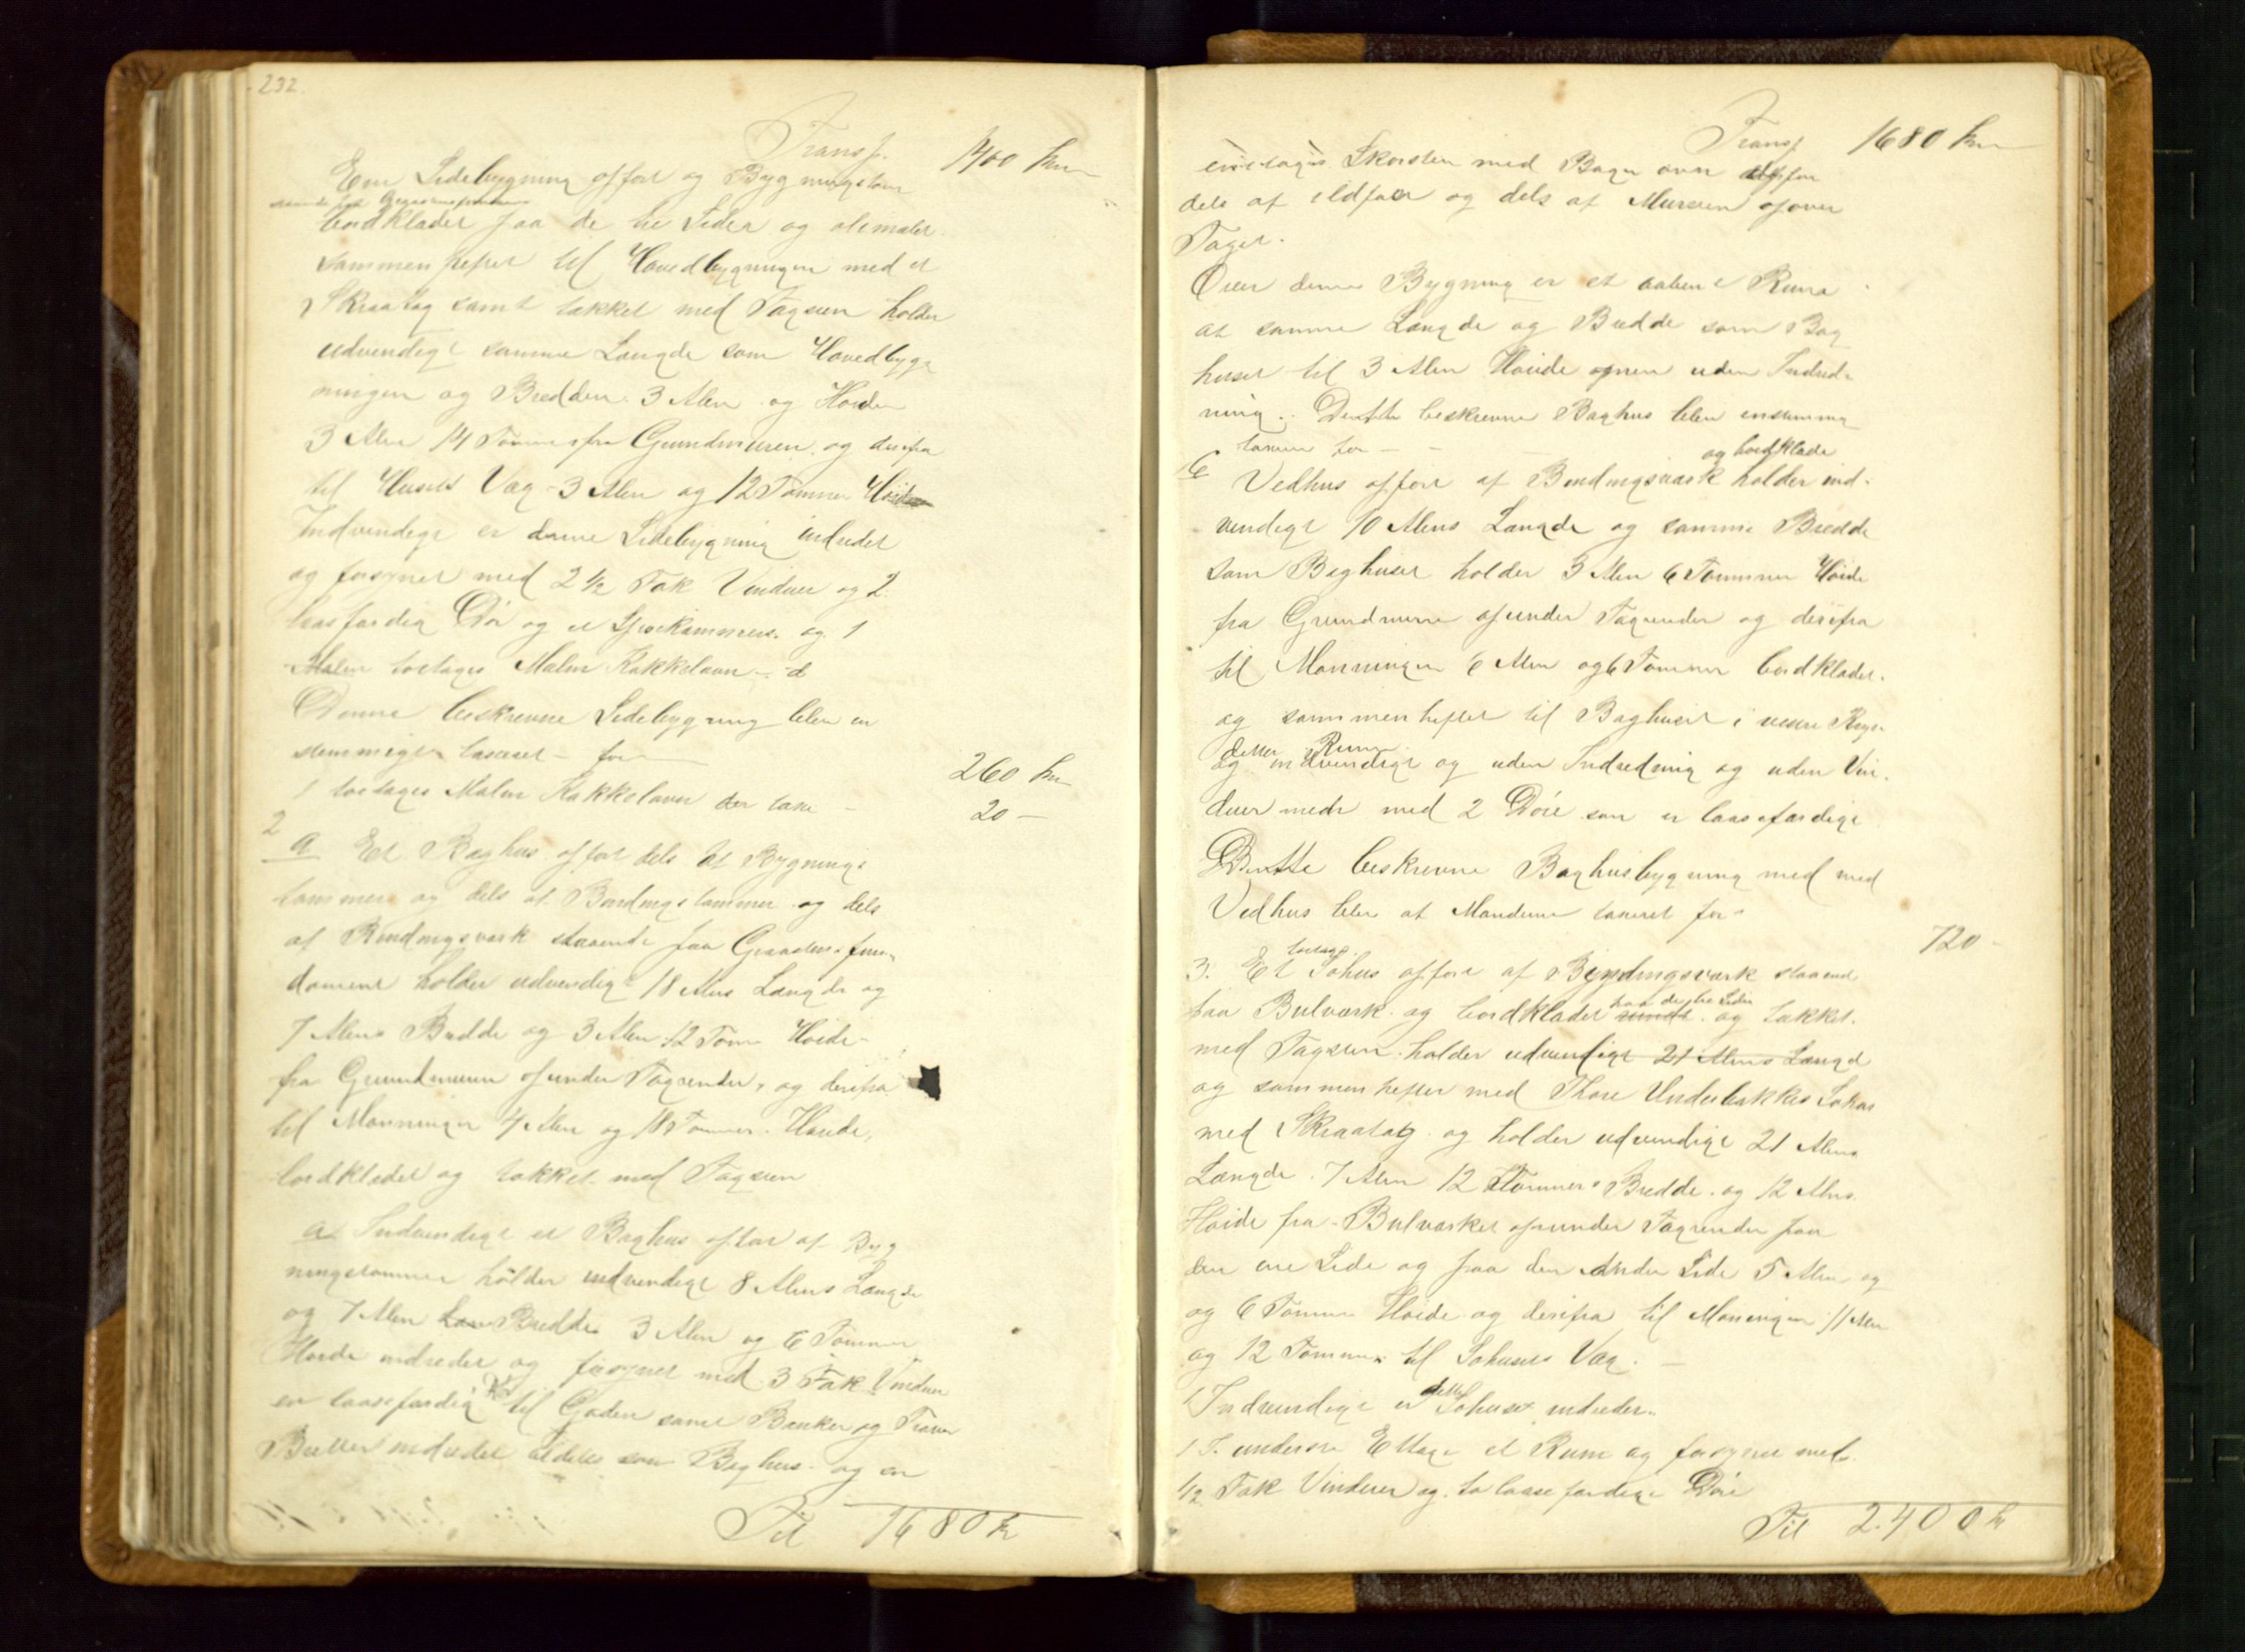 232.
Transp. 1400 Kr
Een Sidebygning opført og Bygningstøm
bordklædet paa de tre Sider og olimalet
sammenheftet til Hovedbygningen med et
Skraatag samt tækket med Tagsten holder
udvendigt samme Længde som Hovedbyg
ningen og Bredden 3 Alen og Høiden
3 Alen 14 Tommer fra Grundmuren og derifra
til Husets Væg 3 Alen og 12 Tommer Høide
Indvendigt er denne Sidebygning indredet
og forsynet med 2 1/2 Fak Vinduer og 2
laasfærdig Dør og et Spisekammers og 1
Malm toetages Malm Kakkelovn
Denne beskrevne Sidebygning blev en
stemmigen taxeret for 260 Kr
1 toetages Malm Kakkelovn der taxe 20 —
2
a Et Baghus opført dels af Bygnings
tømmer og dels af Bindingstømmer og dels
af Bindingsværk staaende paa Graastensfun
dament holder udvendigt 18 Alens Længde og
7 Alens Bredde og 3 Alen 12 Tom Høide
fra Grundmuren opunder Tagrender, og derifra
til Mønningen 4 Alen og 18 Tommer Høide,
bordklædet og tækket med Tagsten
a Indvendigt er Baghus opført af Byg
ningstømmer holder indvendigt 8 Alens Længde
og 7 Alen Bredde 3 Alen og 6 Tommer
Høide indredet og forsynet med 3 Fak Vinduer
en laasefærdig til Gaden samt Bænker og
indredet som Baghus og en
Til 1680 Kr
Transp 1680 Kr
eenetages Skorsten med Bager ovn opfør
dels af ildfast og dels af Mursten opover
Taget.
Over denne Bygning er et aabent Rum
at samme Længde og Bredde som Bag
huset til 3 Alen Høide uden Indred
ning. Dette beskrevne Baghus blev enstemmig
taxeret for — —
og bordklædt
Vedhus opført af Bindingsværk holder ind
vendigt 10 Alens Længde og samme Bredde
som Baghuset holder 3 Alen 6 Tommer Høide
fra Grundmuren opunder Tagrender og derifra
til Mønningen 6 Alen og 6 Tommer bordklædet
og sammenheftet til Baghuset i
dette Rum
og indvendigt og uden Indredning og uden Vin
duer med 2 Døre som er laasefærdige
Dette beskrevne Baghusbygning med med
Vedhus blev af Mændene taxeret for 720
toetages
3. Et Søhus opført af Bindingsværk staaend
paa de tre Sider
paa Bulværk og bordklædet rundt og tækket
med Tagsten holder udvendigt 21 Alens Længd
og sammenheftet med Thore Underbakkes Søhus
med Skraatag og holder udvendigt 21 Alens
Længde 7 Alen 12 Tommers Bredde og 12 Alens
Høide fra Bulværket opunder Tagrender paa
den ene Side og paa den anden Side 5 Alen og
og 6 Tommer Høide og derifra til Mønningen 11 Alen
og 12 Tommer til Søhusets Væg.
dette
Indvendigt er Søhuset indredet
1 I underste Ettage et Rum og forsynet med
1/2 Fak Vinduer og to laasefærdige Døre
Til 2400 Kr